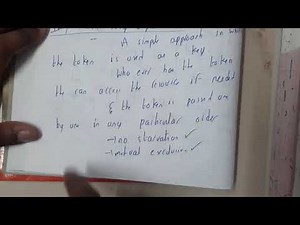 - A simple approach in which
the token is used as a key
who ever has the token
the can access the resource if needed
& the token is passed on
by one in any particular order
→ no starvation ✓
→ mutual exclusion ✓